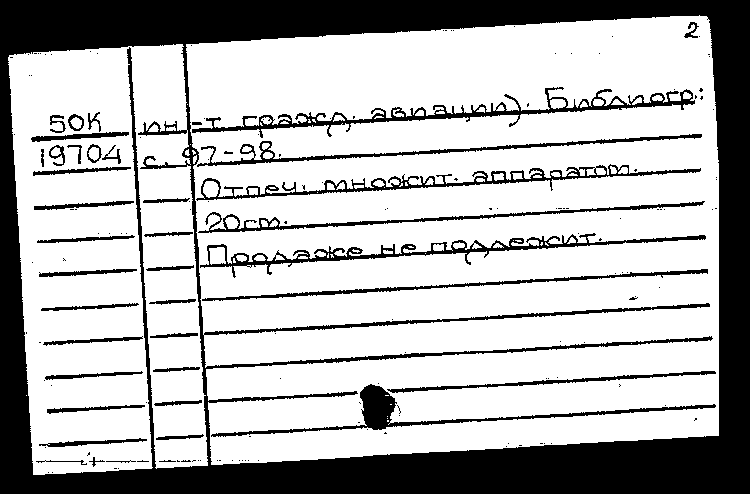 2
50К ин-т гражд. авиации). Библиогр:
19704 с. 97-98.
Отпеч. множит. аппаратом.
20см.
Продаже не подлежит.